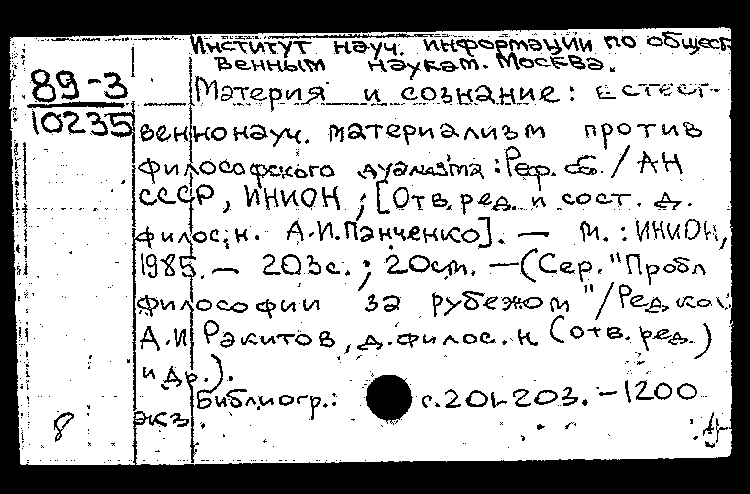 Институт науч. информации по общест
венным наукам. Москва.
89-3
10235
Материя и сознание: Естест-
веннонауч. материализм против
философского дуализма: Реф. сб. / АН
СССР, ИНИОН ; [Отв. ред. и сост. д.
филос. н. А.И. Панченко]. — М. : ИНИОН,
1985. — 203с. ; 20см. — (Сер. "Пробл
философии за рубежом" / Редкол
А.И Ракитов, д. филос. н (отв. ред.)
и др.).
Библиогр.: с. 201-203. — 1200
экз.
8